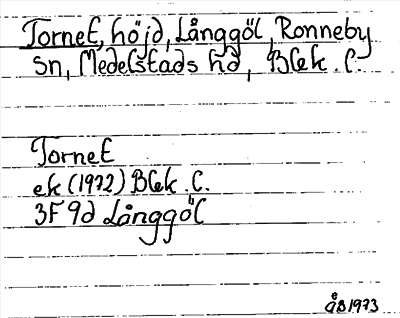 Tornet, höjd, Långgöl, Ronneby
sn, Medelstads hd, Blek. l.
Tornet
ek (1972) Blek. l.
3F 9d Långgöl
ÅB 1973